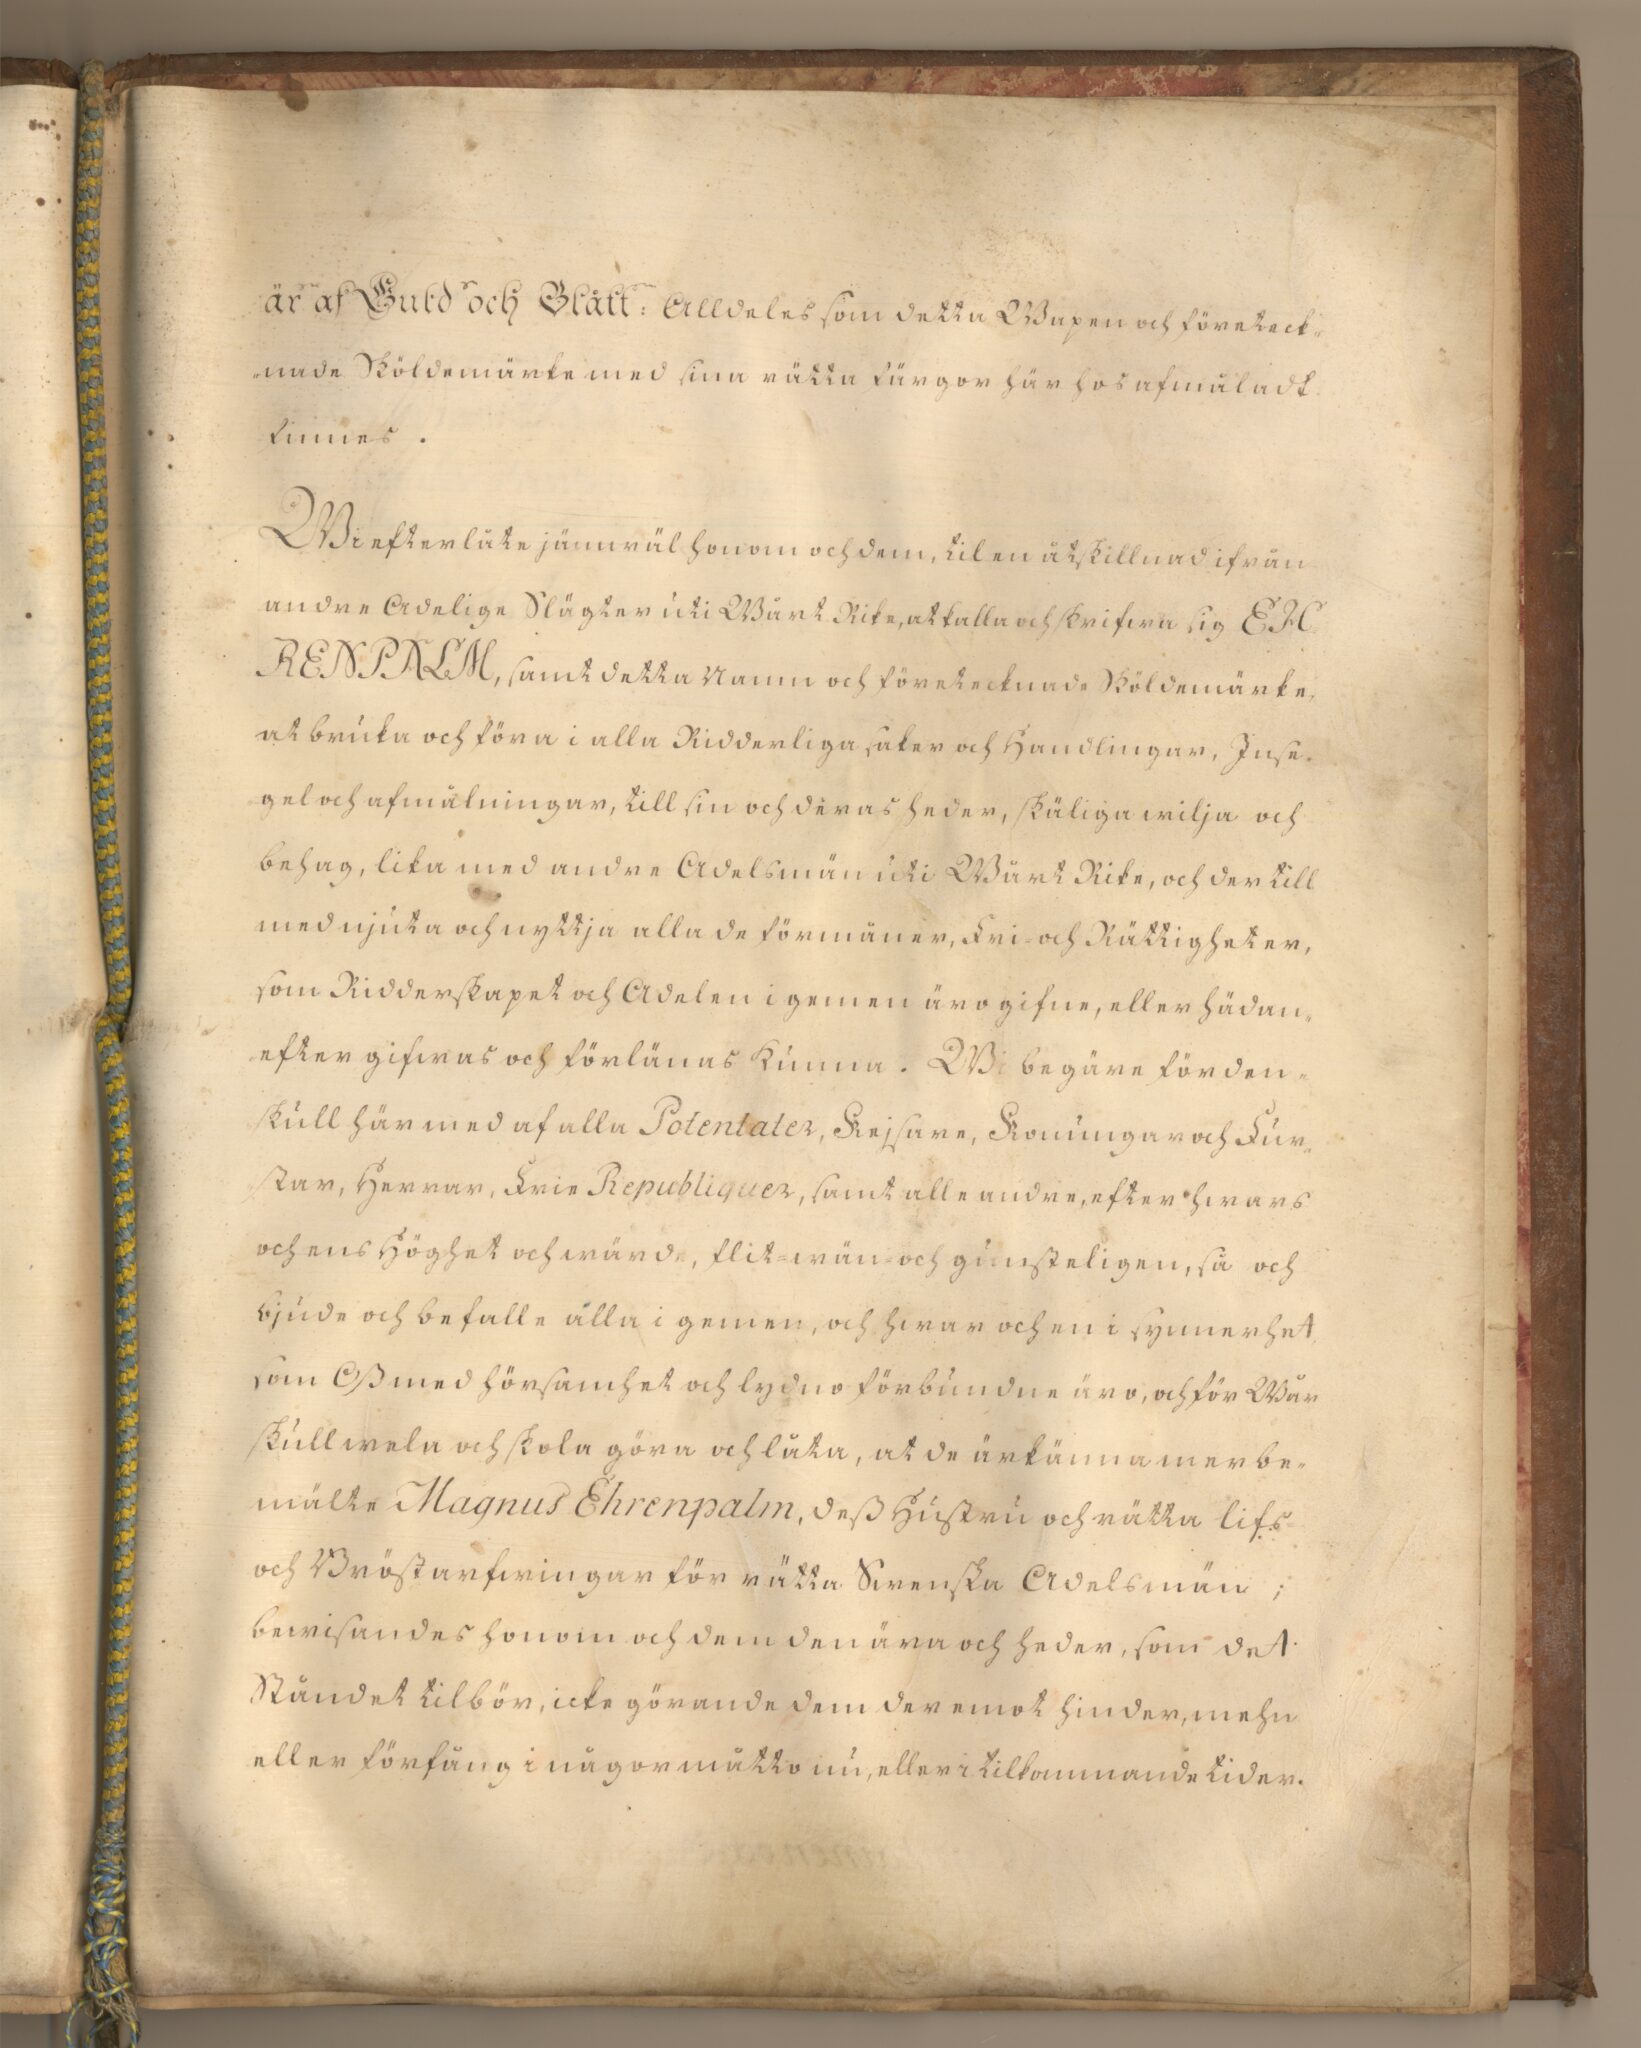 är af Guld och Blått: Alldeles som detta Wapen och företeck-
-nade Sköldemärke med sina rätta färgor här hos afmåladt
finnes.
Wi efterlåte jämwäl honom och dem, til en åtskillnad ifrån
andre Adelige Slägter uti Wårt Rike, at kalla och skrifwa sig EH-
RENPALM, samt detta Namn och företecknade Sköldemärke,
at bruka och föra i alla Ridderliga saker och Handlingar, Inse-
gel och afmålningar, till sin och deras heder, skäliga wilja och
behag, lika med andre Adelsmän uti Wårt Rike, och der till
med njuta och nyttja alla de förmåner, Fri- och Rättigheter,
som Ridderskapet och Adelen i gemen äro gifne, eller hädan-
efter gifwas och förlänas kunna. Wi begäre förden-
skull här med af alla Potentater, Kejsare, Konungar och Fur-
star, Herrar, Frie Republiquer, samt alle andre, efter hwars
och ens Höghet och wärde, flit- wän- och gunsteligen, så och
bjude och befalle alla i gemen, och hwar och en i synnerhet
som Oß med hörsamhet och lydno förbundne äro, och för Wår
skull wela och skola göra och låta, at de ärkänna merbe-
mälte Magnus Ehrenpalm, deß Hustru och rätta lifs-
och Bröstarfwingar för rätta Swenska Adelsmän;
bewisandes honom och dem den ära och heder, som det
Ståndet tilbör, icke görande dem deremot hinder, mehn
eller förfång i någor måtto nu, eller i tilkommande tider.